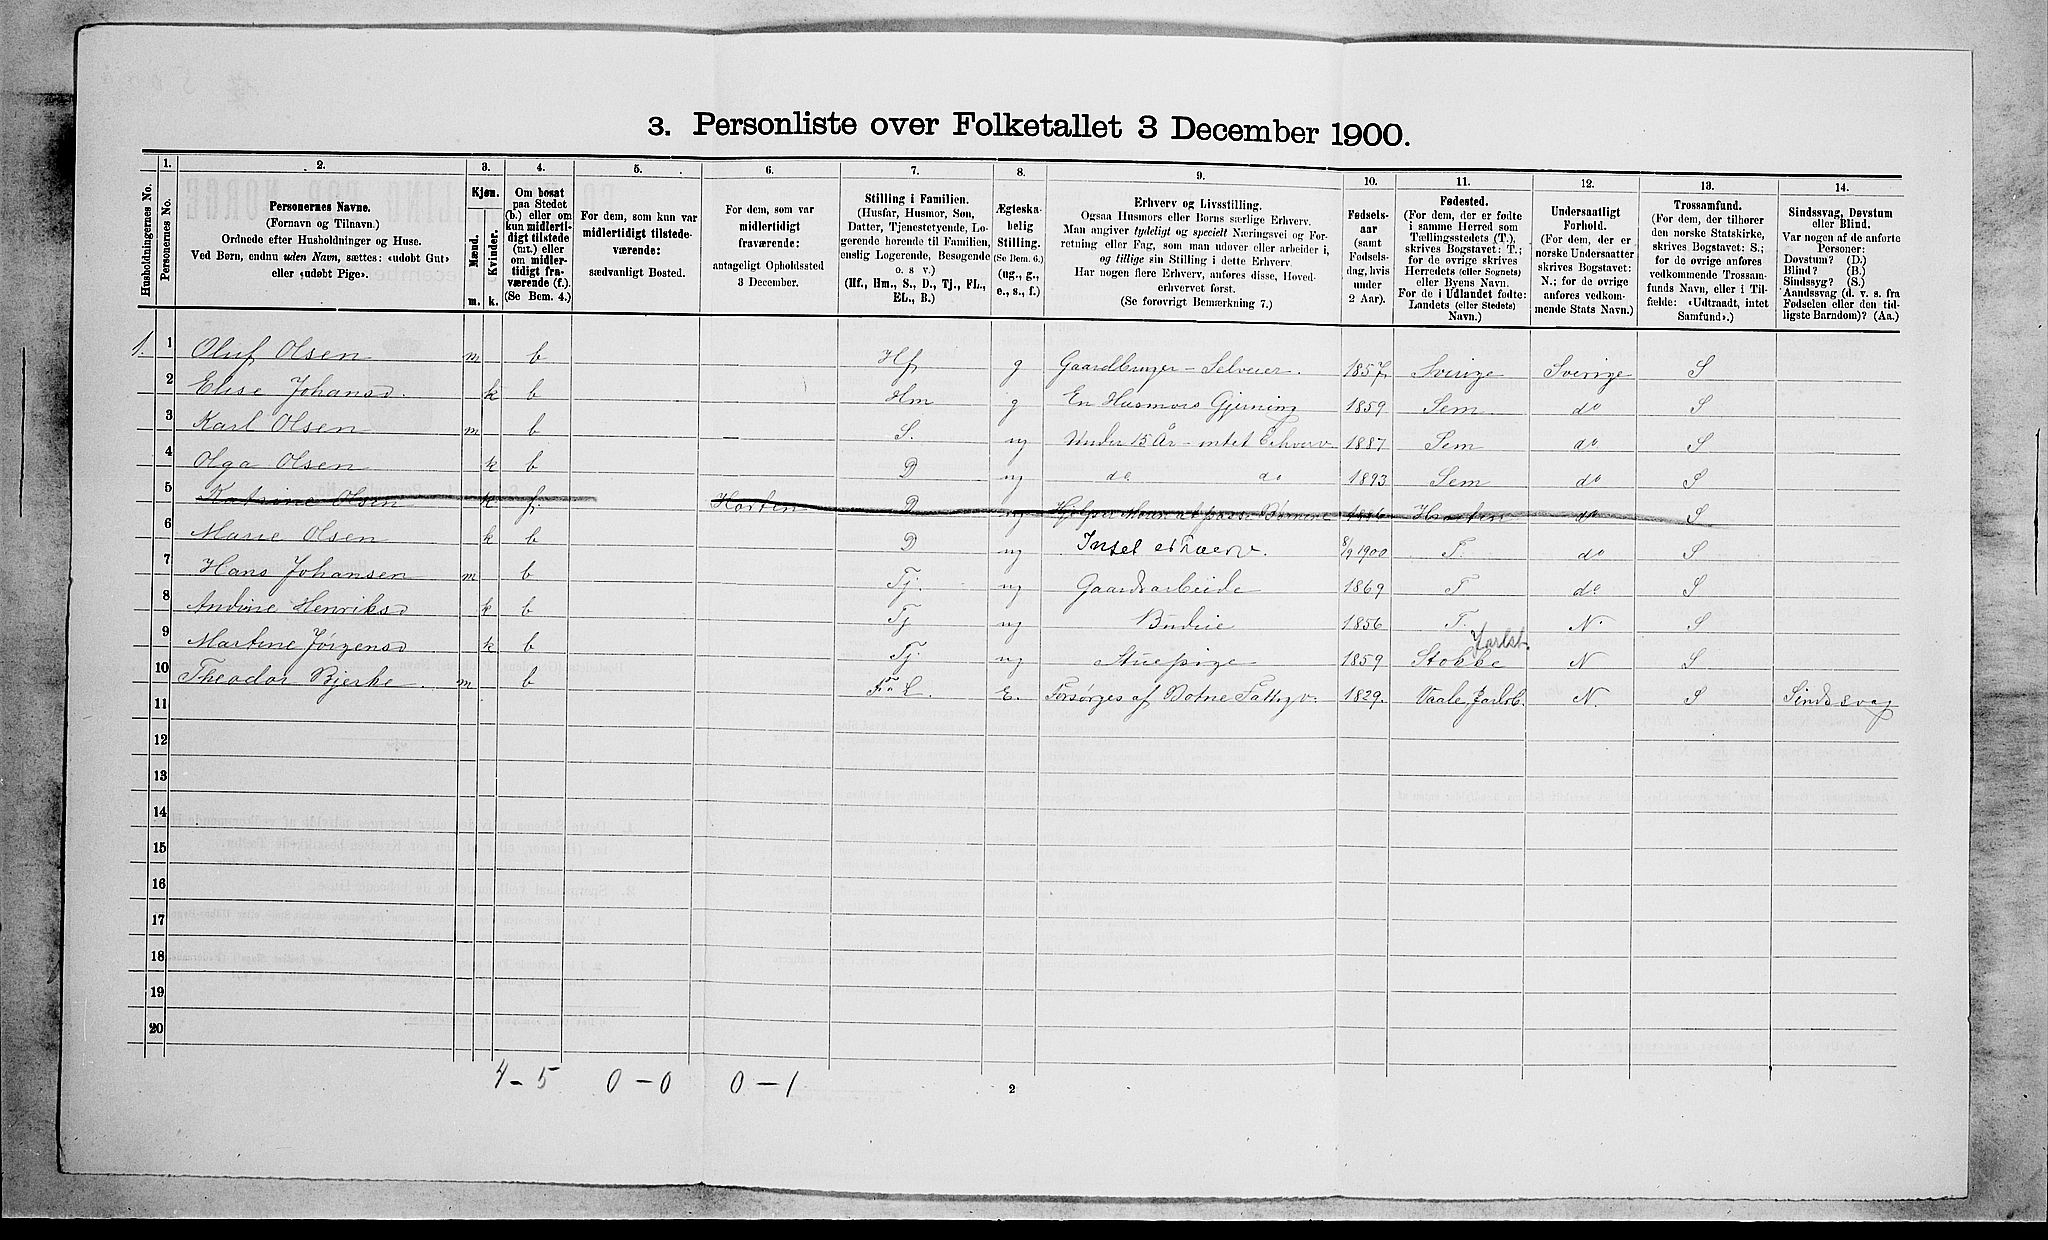 3. Personliste over Folketallet 3 December 1900.
Husholdningernes No.
1.
Personernes No.
2.
Personernes Navne.
(Fornavn og Tilnavn.)
Ordnede efter Husholdninger og Huse.
Ved Børn, endnu uden Navn, sættes: «udøbt Gut»
eller «udøbt Pige».
3.
Kjøn.
Mænd.
Kvinder.
m. k.
4.
Om bosat
paa Stedet
(b.) eller om
kun midlerti-
digt tilstede
(mt.) eller
om midler-
tidigt fra-
værende (f.).
(Se Bem. 4.)
5.
For dem, som kun var
midlertidigt tilstede-
værende:
sædvanligt Bosted.
6.
For dem, som var
midlertidigt
fraværende:
antageligt Opholdssted
3 December.
7.
Stilling i Familien.
(Husfar, Husmor, Søn,
Datter, Tjenestetyende, Lo-
gerende hørende til Familien,
enslig Logerende, Besøgende
o. s v.)
(Hf., Hm., S., D., Tj., FL.,
EL., B.)
8.
Ægteska-
belig
Stilling.
(Se Bem. 6.)
(ug., g.,
e., s., f.)
9.
Erhverv og Livsstilling.
Ogsaa Husmors eller Børns særlige Erhverv.
Man angiver tydeligt og specielt Næringsvei og For-
retning eller Fag, som man udøver eller arbeider i,
og tillige sin Stilling i dette Erhverv.
Har nogen flere Erhverv, anføres disse, Hoved-
erhvervet først.
(Se forøvrigt Bemerkning 7.)
10.
Fødsels-
aar
(samt
Fødsels-
dag, hvis
under
2 Aar).
11.
Fødested.
(For dem, der er fødte
i samme Herred som
Tællingsstedets (T.),
skrives Bogstavet: T.;
for de øvrige skrives
Herredets (eller Sognets)
eller Byens Navn.
For de i Udlandet fødte:
Landets (eller Stedets)
Navn.)
12.
Undersaatligt
Forhold.
(For dem, der er
norske Undersaatter
skrives Bogstavet:
N.; for de øvrige
anføres vedkom-
mende Stats Navn.)
13.
Trossamfund.
(For dem, der tilhører
den norske Statskirke,
skrives Bogstavet: S.;
for de øvrige anføres
vedkommende Trossam-
funds Navn, eller i Til-
fælde: «Udtraadt, intet
Samfund».)
14.
Sindssvag, Døvstum
eller Blind.
Var nogen af de anførte
Personer:
Døvstum? (D.)
Blind? (B.)
Sindssyg? (S.)
Aandssvag (d. v. s. fra
Fødselen eller den tid-
ligste Barndom)? (Aa.)
1. 1 Oluf Olsen m b Hf g Gaardbruger - Selveier. 1857 Sverige Sverige S
2 Elise Johansd. k b Hm g En Husmors Gjerning 1859 Sem do S
3 Karl Olsen m b S. ug Under 15 År - intet Erhverv 1887 Sem do S
4 Olga Olsen k b D ug do do 1893 Sem do S
5 Katrine Olsen k f. Horten D ug Hjelper Moer at passe Børnene 1886 Horten do S
6 Marie Olsen k b D ug Intet erhverv. 8/9 1900 T. do S
7 Hans Johansen m b Tj. ug Gaardsarbeide 1869 T do S
8 Andine Henriksd k b Tj ug Budeie 1856 T. N. S
9 Martine Jørgensd k b Tj. ug Stuepige 1859 Stokke Jarlsb. N S
10 Theodor Bjerke. m b F. L. E. Forsørges af Botne Fattigv. 1829. Vaale Jarlsb. N. S Sindssvag
11
12
13
14
15
16
17
18
19
20
4 - 5 0 - 0 0 - 1
2